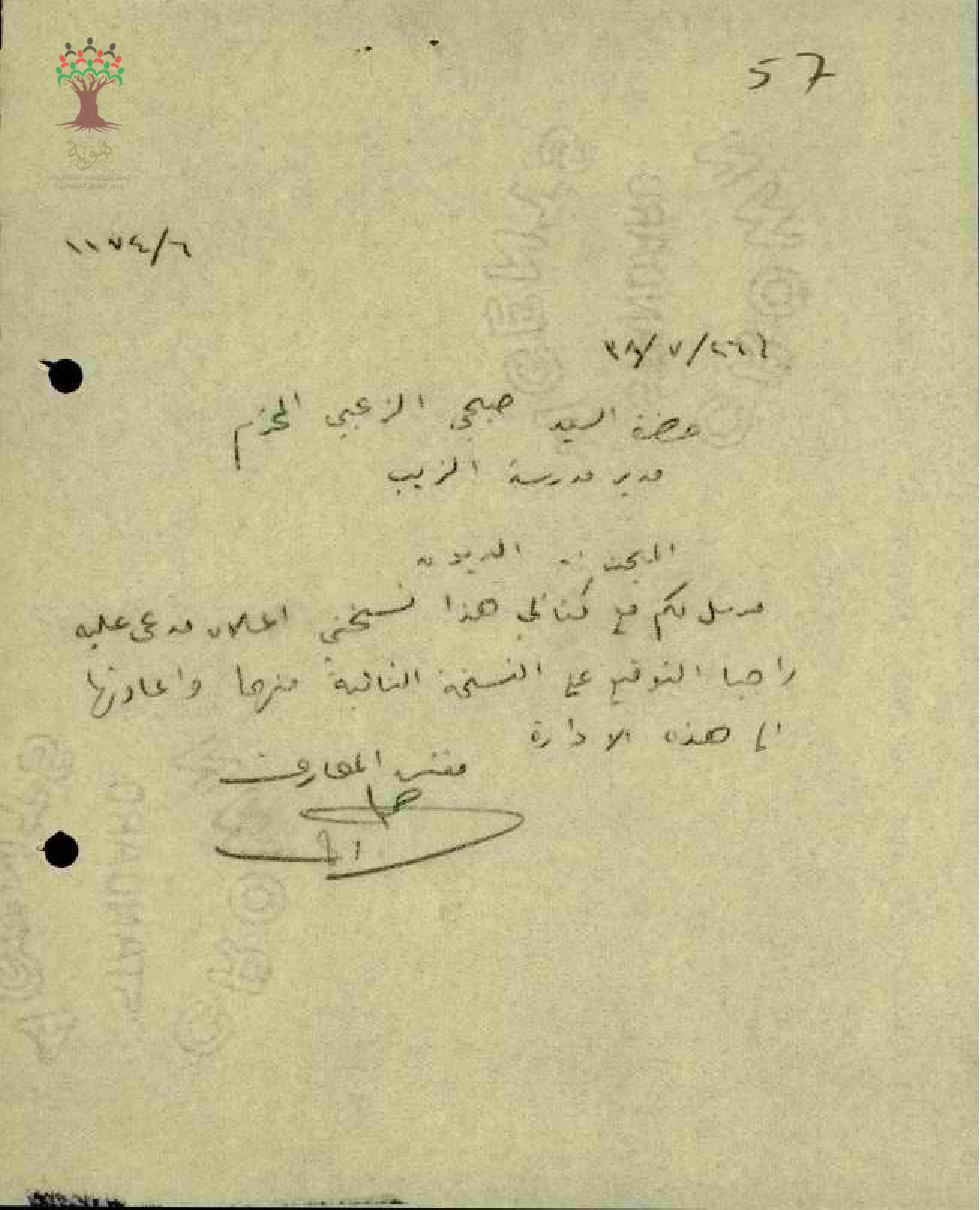 57
هوية
١١٧٤/٦
حضرة السيد صبحي الزعبي المحترم
مدير مدرسة الزيب
الديون
مرسل لكم مع كتابي هذا نسختي اعلان مدعى عليه
راجيا التوقيع على النسخة الثانية منها واعادتها
الى هذه الادارة
مفتش المعارف